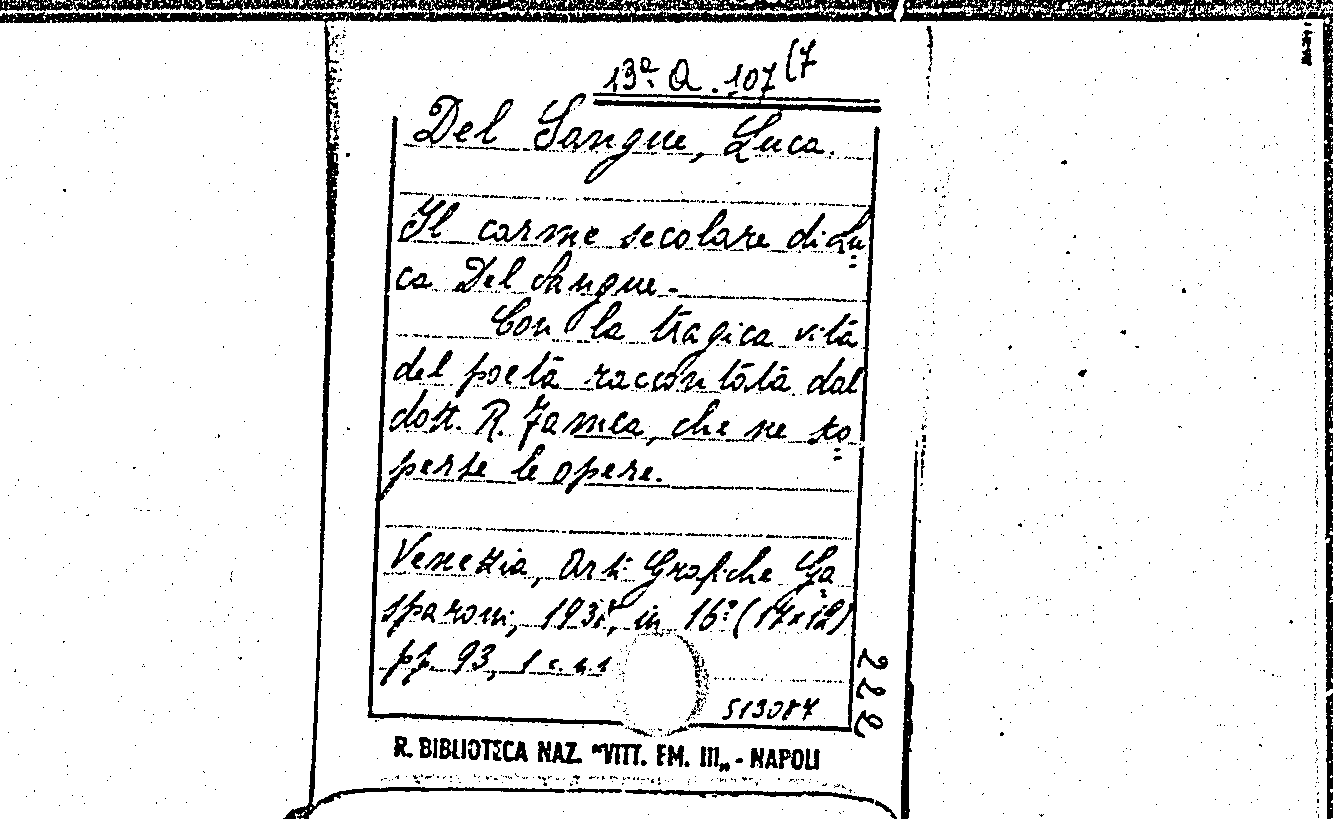 13ª. Q. 107 (7
Del Sangue, Luca.
Il carme secolare di Lu
ca Del Sangue.-
Con la tragica vita
del poeta raccontata dal
dott. R. Jamea, che ne sco
perse le opere.
Venezia, Arti Grafiche Ga
sparoni, in 16º (17x12)
pp. 93, 1 c.
513087
222
R. BIBLIOTECA NAZ. "VITT. EM. III„ - NAPOLI